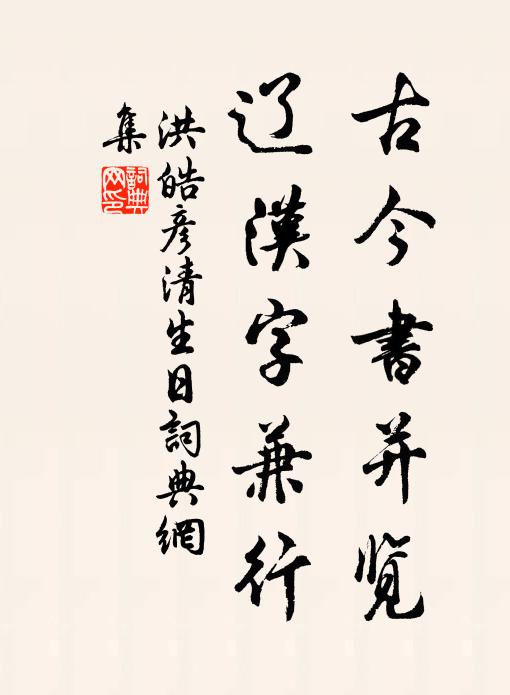 古今書并览
辽漢字兼行
洪皓彦清生日詞典網
集
詞典網印